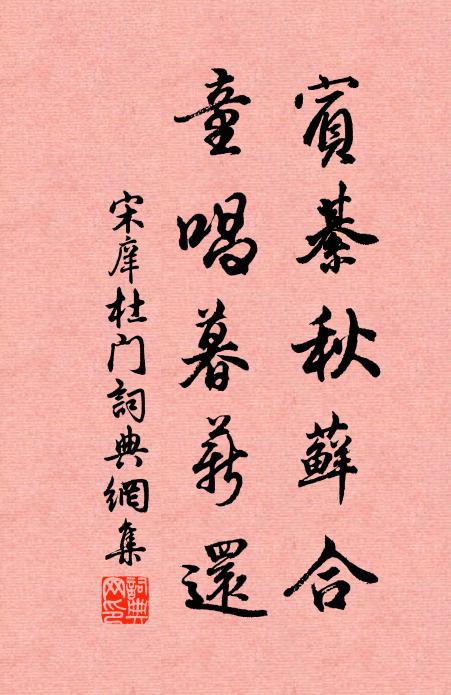 賓綦秋蘚合
童唱暮薪還
宋庠杜门詞典網集
詞典网印